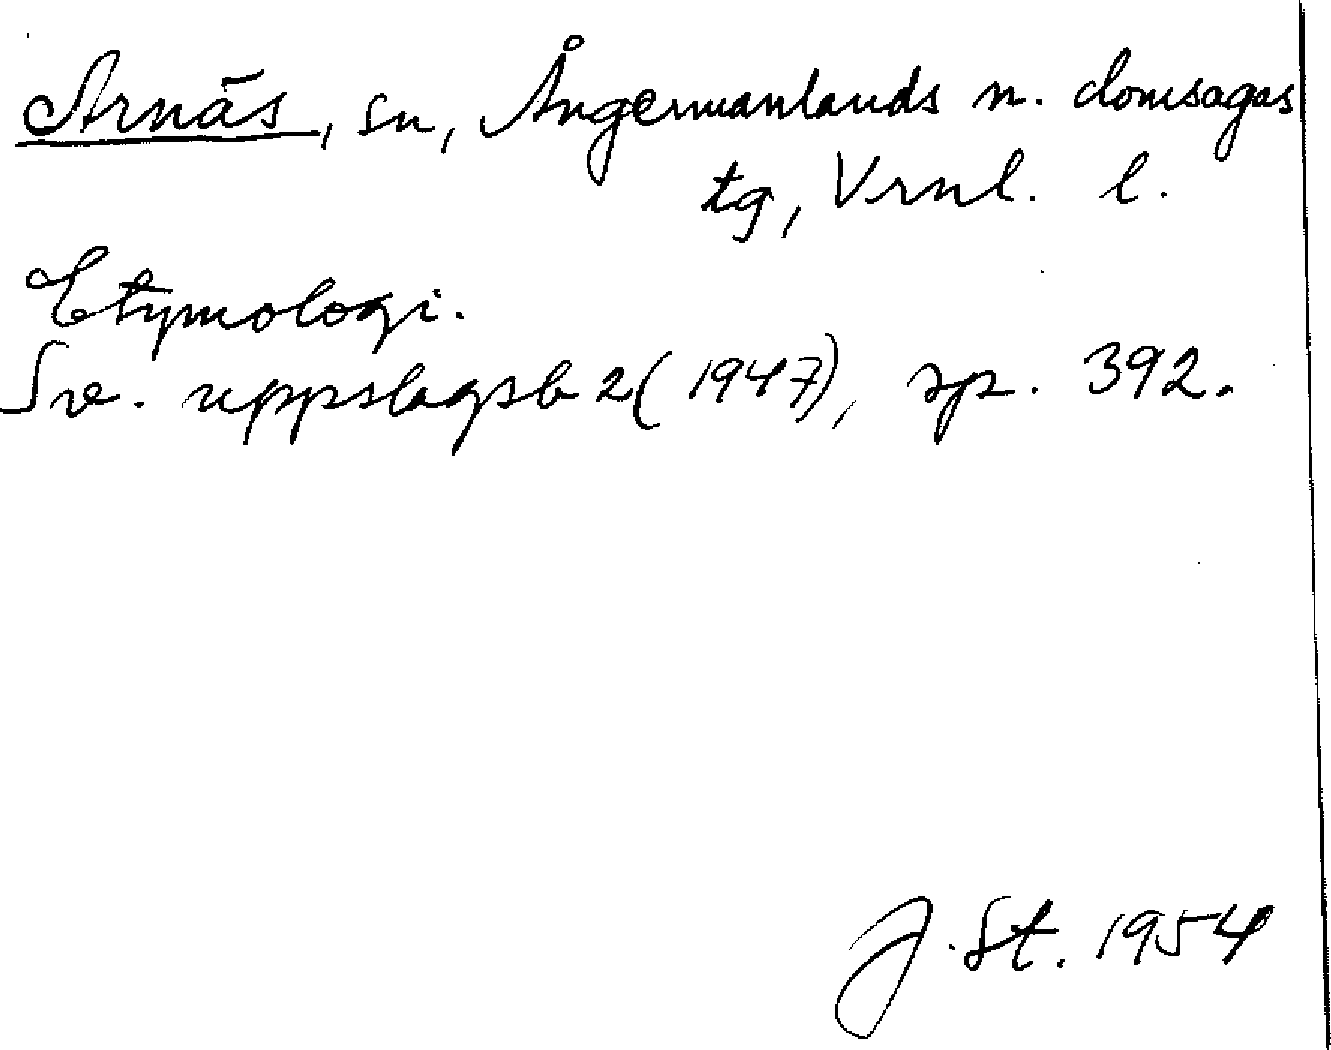 Arnäs, sn, Ångermanlands n. domsagas
tg, Vrnl. l.
Etymologi.
Sv. uppslagsb 2(1947), sp. 392.
J. St. 1954